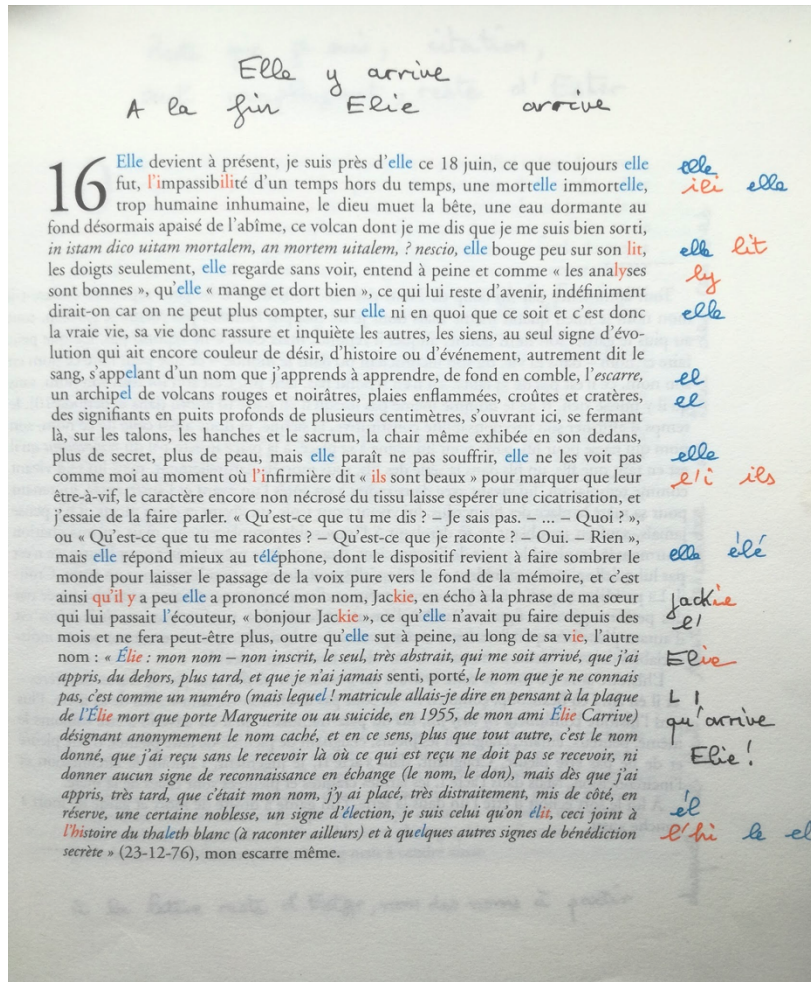 Elle y arrive
A la fin Elie arrive
16 Elle devient à présent, je suis près d'elle ce 18 juin, ce que toujours elle elle
fut, l'impassibilité d'un temps hors du temps, une mortelle immortelle, ili elle
trop humaine inhumaine, le dieu muet la bête, une eau dormante au
fond désormais apaisé de l'abîme, ce volcan dont je me dis que je me suis bien sorti,
in istam dico uitam mortalem, an mortem uitalem, ? nescio, elle bouge peu sur son lit, elle lit
les doigts seulement, elle regarde sans voir, entend à peine et comme « les analyses ly
sont bonnes », qu'elle « mange et dort bien », ce qui lui reste d'avenir, indéfiniment
dirait-on car on ne peut plus compter, sur elle ni en quoi que ce soit et c'est donc elle
la vraie vie, sa vie donc rassure et inquiète les autres, les siens, au seul signe d'évo-
lution qui ait encore couleur de désir, d'histoire ou d'événement, autrement dit le
sang, s'appelant d'un nom que j'apprends à apprendre, de fond en comble, l'escarre, el
un archipel de volcans rouges et noirâtres, plaies enflammées, croûtes et cratères, el
des signifiants en puits profonds de plusieurs centimètres, s'ouvrant ici, se fermant
là, sur les talons, les hanches et le sacrum, la chair même exhibée en son dedans,
plus de secret, plus de peau, mais elle paraît ne pas souffrir, elle ne les voit pas elle
comme moi au moment où l'infirmière dit « ils sont beaux » pour marquer que leur l'i ils
être-à-vif, le caractère encore non nécrosé du tissu laisse espérer une cicatrisation, et
j'essaie de la faire parler. « Qu'est-ce que tu me dis ? – Je sais pas. – ... – Quoi ? »,
ou « Qu'est-ce que tu me racontes ? – Qu'est-ce que je raconte ? – Oui. – Rien »,
mais elle répond mieux au téléphone, dont le dispositif revient à faire sombrer le elle élé
monde pour laisser le passage de la voix pure vers le fond de la mémoire, et c'est
ainsi qu'il y a peu elle a prononcé mon nom, Jackie, en écho à la phrase de ma sœur Jackie
qui lui passait l'écouteur, « bonjour Jackie », ce qu'elle n'avait pu faire depuis des l'
mois et ne fera peut-être plus, outre qu'elle sut à peine, au long de sa vie, l'autre
nom : « Élie : mon nom – non inscrit, le seul, très abstrait, qui me soit arrivé, que j'ai Elie
appris, du dehors, plus tard, et que je n'ai jamais senti, porté, le nom que je ne connais
pas, c'est comme un numéro (mais lequel ! matricule allais-je dire en pensant à la plaque L I
de l'Élie mort que porte Marguerite ou au suicide, en 1955, de mon ami Élie Carrive) qu'arrive
désignant anonymement le nom caché, et en ce sens, plus que tout autre, c'est le nom Elie !
donné, que j'ai reçu sans le recevoir là où ce qui est reçu ne doit pas se recevoir, ni
donner aucun signe de reconnaissance en échange (le nom, le don), mais dès que j'ai
appris, très tard, que c'était mon nom, j'y ai placé, très distraitement, mis de côté, en
réserve, une certaine noblesse, un signe d'élection, je suis celui qu'on élit, ceci joint à él
l'histoire du thaleth blanc (à raconter ailleurs) et à quelques autres signes de bénédiction l'hi le el
secrète » (23-12-76), mon escarre même.